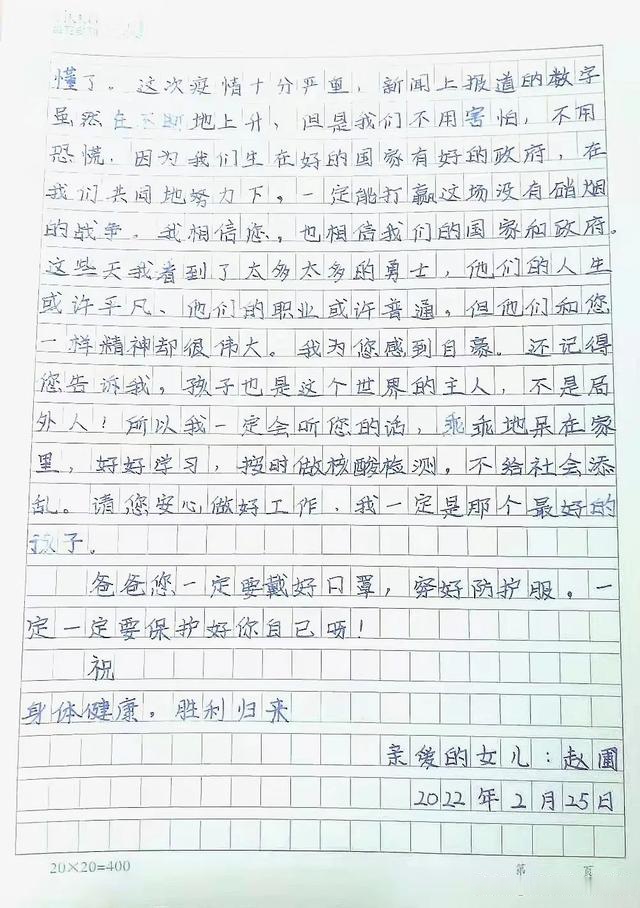 懂了。这次疫情十分严重，新闻上报道的数字
虽然在不断地上升，但是我们不用害怕，不用
恐慌，因为我们生在好的国家有好的政府，在
我们共同地努力下，一定能打赢这场没有硝烟
的战争。我相信您，也相信我们的国家和政府。
这些天我看到了太多太多的勇士，他们的人生
或许平凡、他们的职业或许普通，但他们和您
一样精神却很伟大。我为您感到自豪。还记得
您告诉我，孩子也是这个世界的主人，不是局
外人！所以我一定会听您的话，乖乖地呆在家
里，好好学习，按时做核酸检测，不给社会添
乱。请您安心做好工作，我一定是那个最好的
孩子。
爸爸您一定要戴好口罩，穿好防护服，一
定一定要保护好你自己呀！
祝
身体健康，胜利归来
亲爱的女儿：赵圃
2022年2月25日
20×20=400
第 页